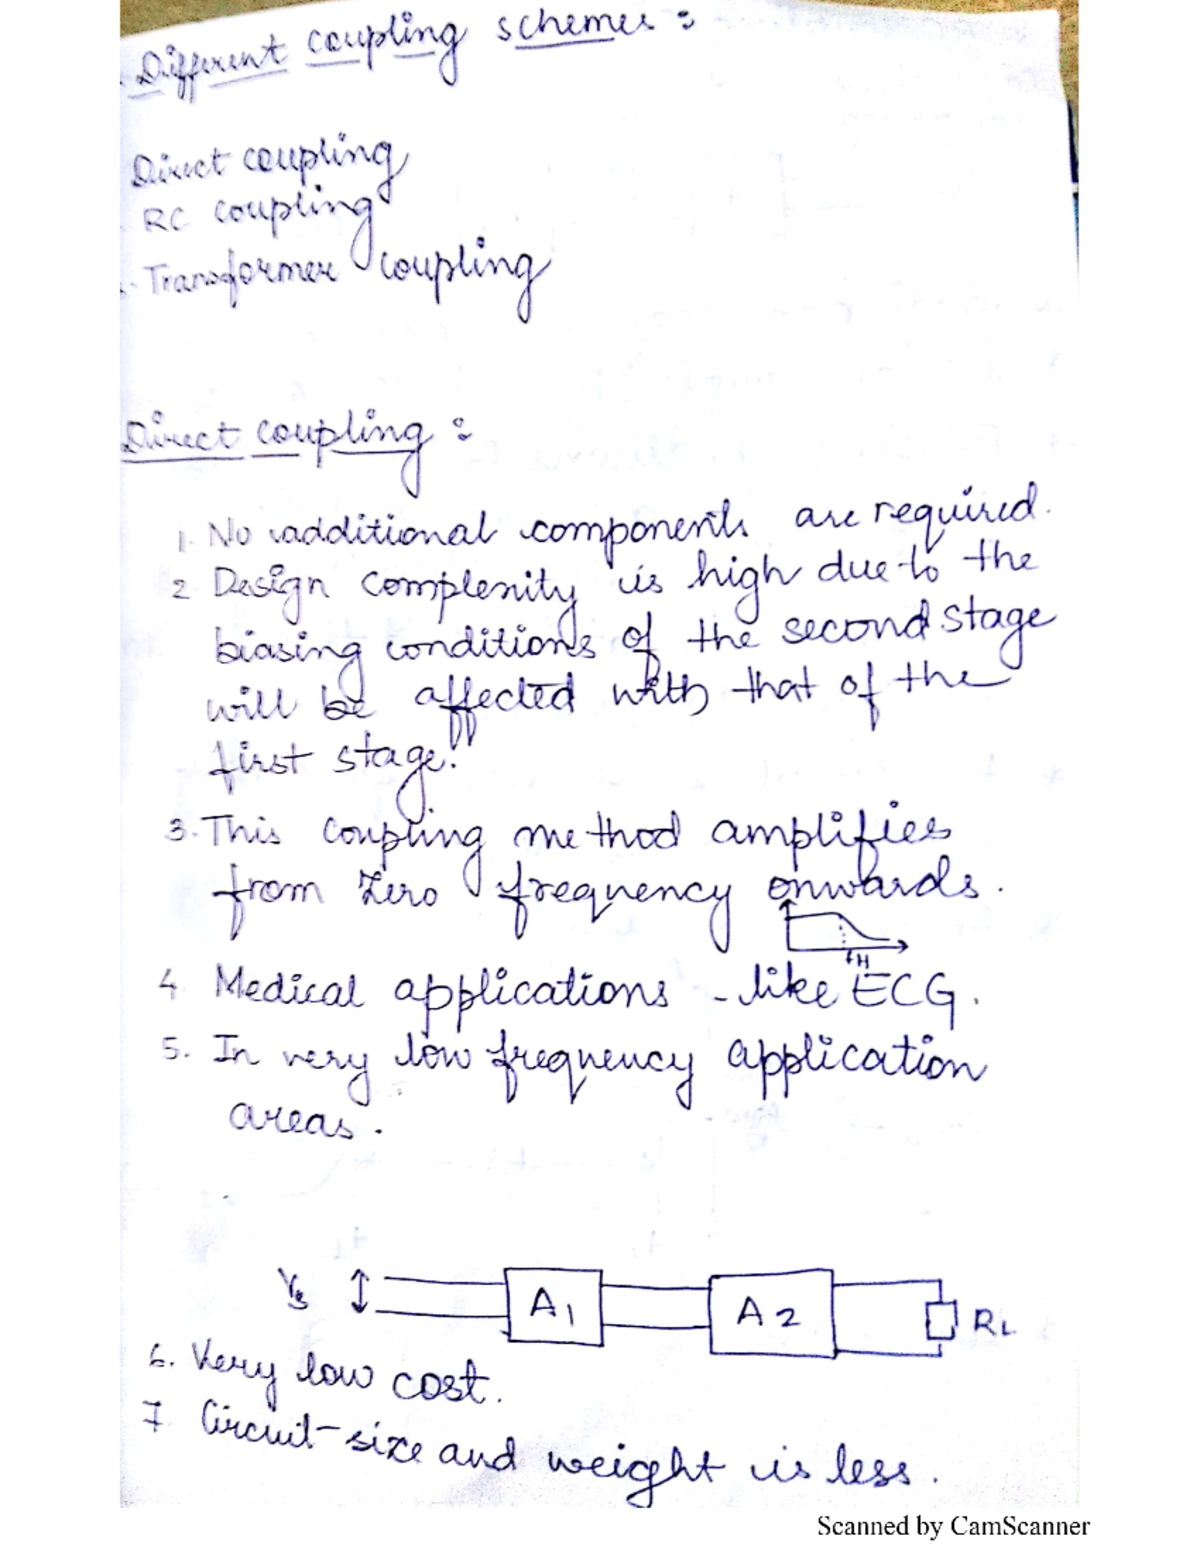 Different coupling schemes :
Direct coupling
RC coupling
Transformer coupling
Direct coupling :
1. No additional components are required.
2. Design complexity is high due to the
biasing conditions of the second stage
will be affected with that of the
first stage.
3. This coupling method amplifies
from zero frequency onwards.
fH
4. Medical applications - like ECG.
5. In very low frequency application
areas.
Vs A1 A2 RL
6. Very low cost.
7. Circuit-size and weight is less.
Scanned by CamScanner